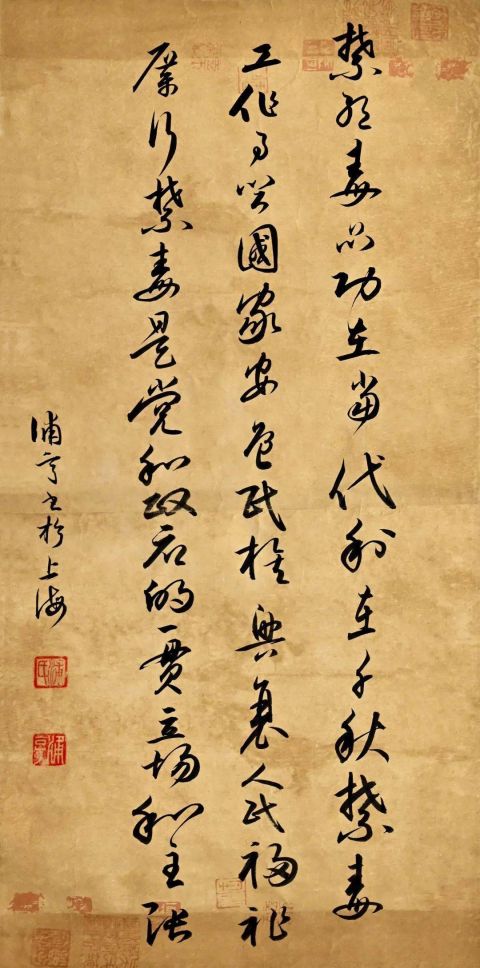 禁绝毒品功在当代利在千秋禁毒
工作事关國家安危民族興衰人民福祉
厲行禁毒是党和政府的一貫立场和主张
浦亨书於上海